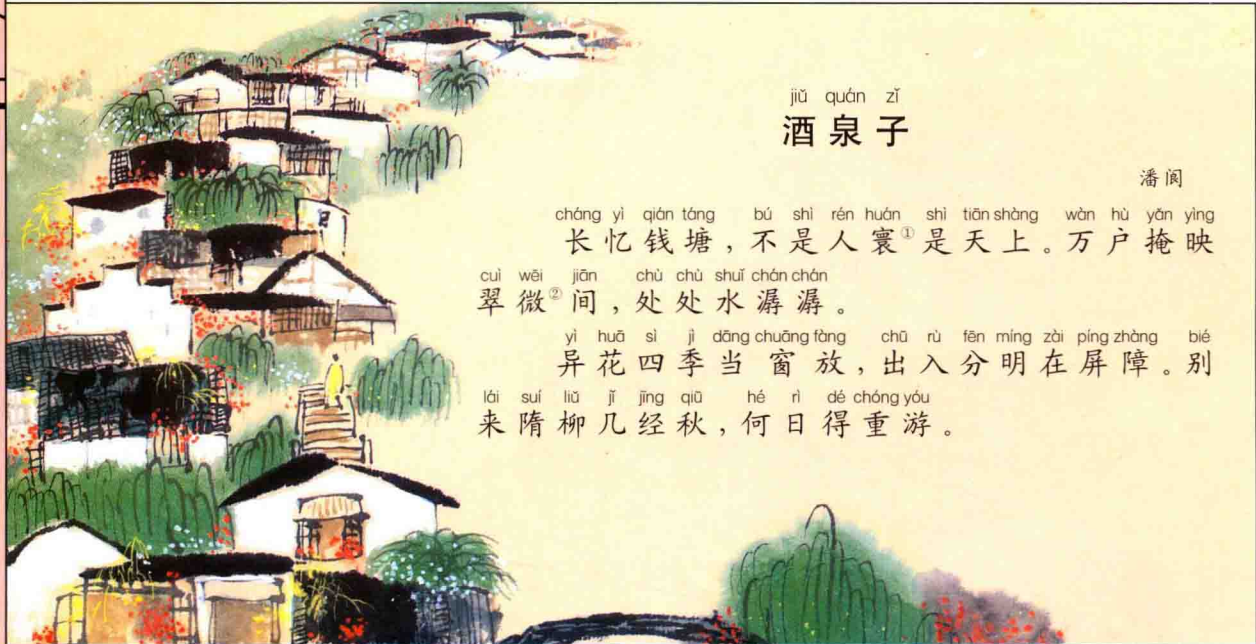 jiǔ quán zǐ
酒泉子
潘阆
cháng yì qián táng bú shì rén huán shì tiān shàng wàn hù yǎn yìng
长忆钱塘，不是人寰①是天上。万户掩映
cuì wēi jiān chù chù shuǐ chán chán
翠微②间，处处水潺潺。
yì huā sì jì dāng chuāng fàng chū rù fēn míng zài píng zhàng bié
异花四季当窗放，出入分明在屏障。别
lái suí liǔ jǐ jīng qiū hé rì dé chóng yóu
来隋柳几经秋，何日得重游。